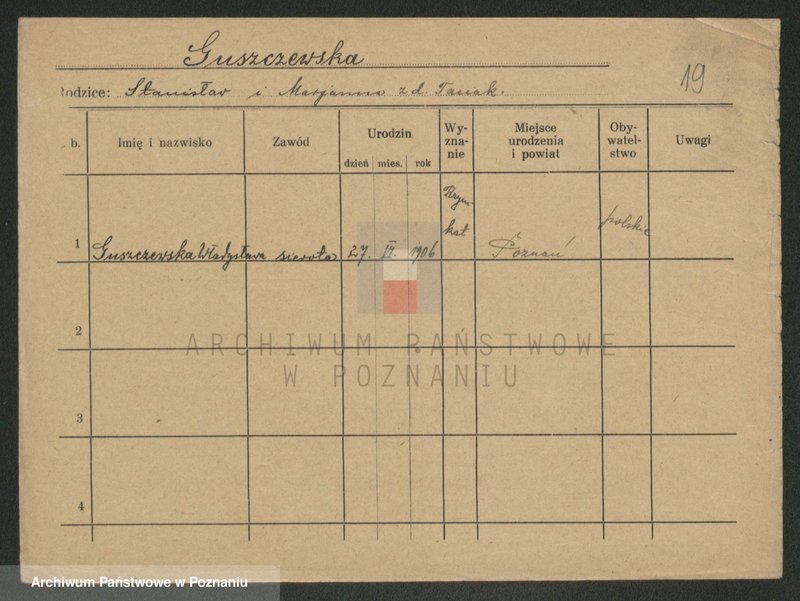 Guszczewska
19
Rodzice: Stanisław i Marjanna z d. Tanak.
b. Imię i nazwisko Zawód Urodzin dzień mies. rok Wy-zna-nie Miejsce urodzenia i powiat Oby-watel-stwo Uwagi
1 Guszczewska Władysława sierota 27. VI. 1906 Rzym-kat Poznań polskie
2
ARCHIWUM PAŃSTWOWE
W POZNANIU
3
4
Archiwum Państwowe w Poznaniu